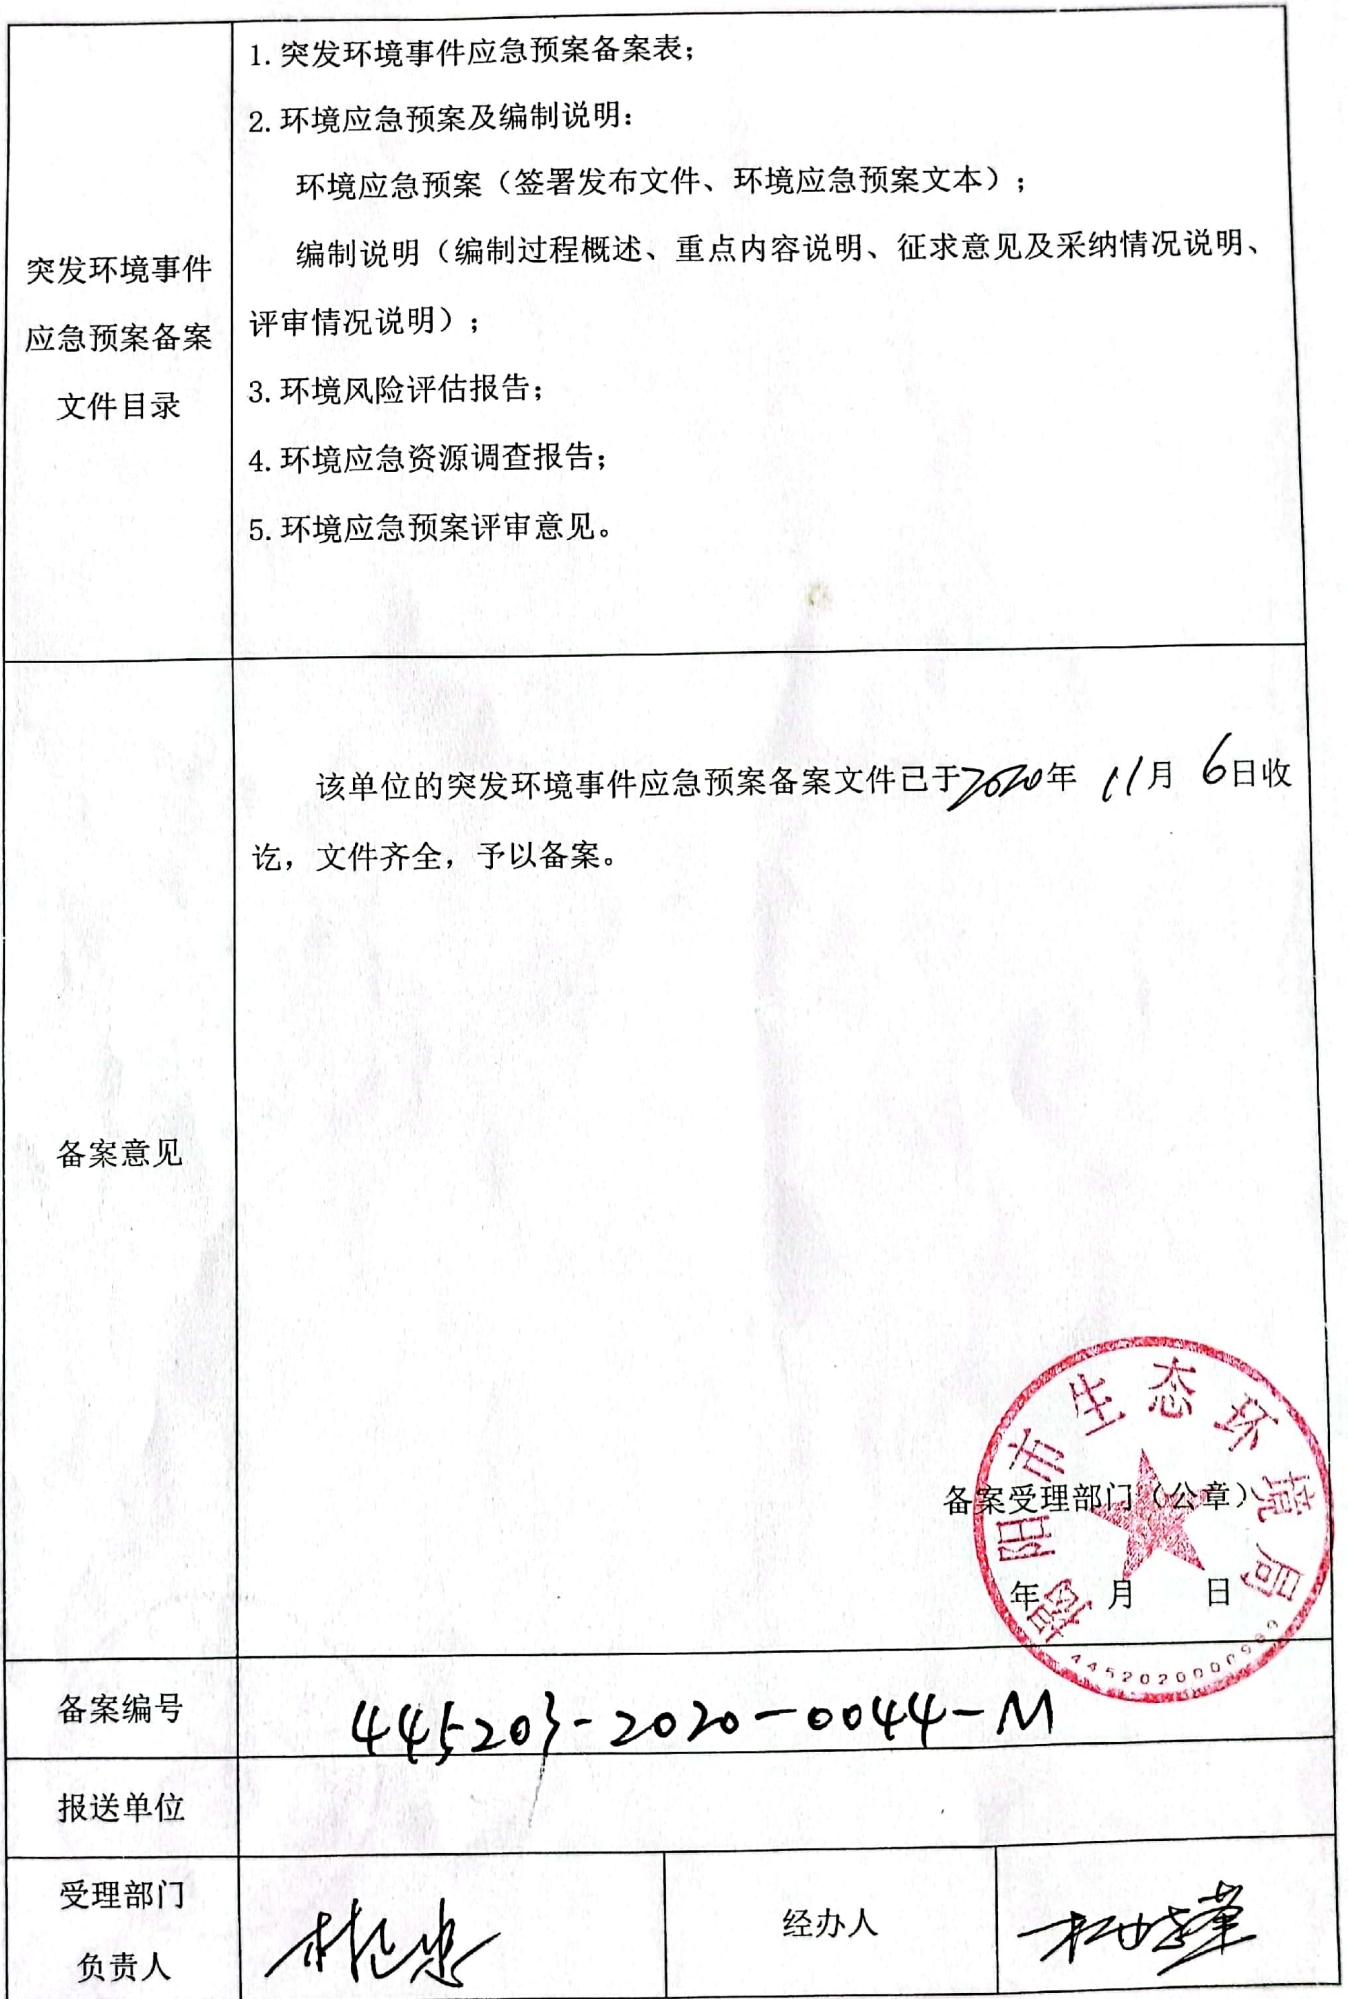 突发环境事件
应急预案备案
文件目录
1.突发环境事件应急预案备案表；
2.环境应急预案及编制说明：
环境应急预案（签署发布文件、环境应急预案文本）；
编制说明（编制过程概述、重点内容说明、征求意见及采纳情况说明、
评审情况说明）；
3.环境风险评估报告；
4.环境应急资源调查报告；
5.环境应急预案评审意见。
备案意见
该单位的突发环境事件应急预案备案文件已于2020年 11月 6日收
讫，文件齐全，予以备案。
揭阳市生态环境局
备案受理部门（公章）
年 月 日
备案编号
445203-2020-0044-M
报送单位
受理部门
负责人
经办人